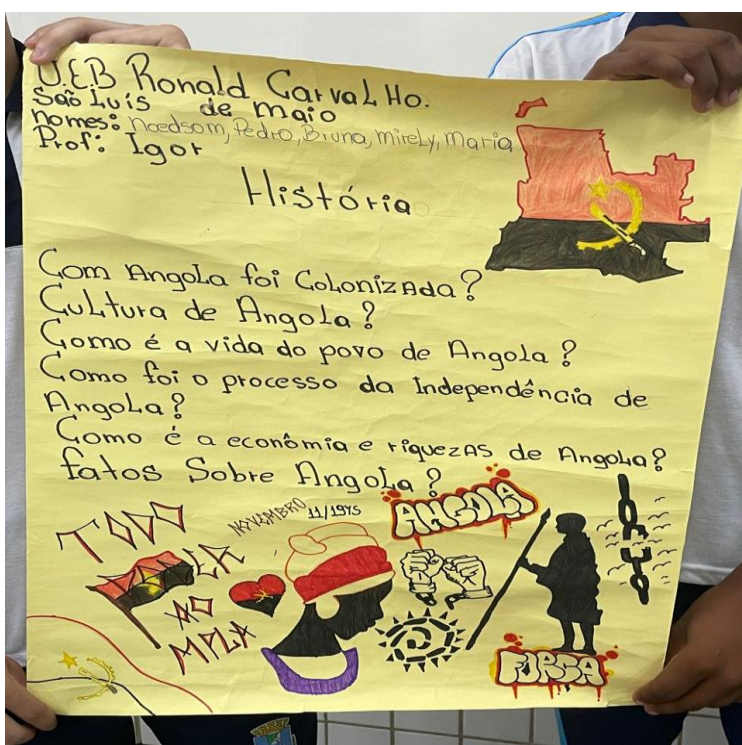 U.E.B Ronald CarvaLHo.
São Luís de maio
nomes: Noedsom, Pedro, Bruna, mirely, maria
Prof: Igor
História
Com AngoLa foi CoLonizAda?
CuLtura de AngoLa?
Como é a vida do povo de AngoLa?
Como foi o processo da Independência de
AngoLa?
Como é a econômia e riquezAs de AngoLa?
fatos Sobre AngoLa?
TODO
NOVEMBRO 11/1975
ANGOLA
AO
MPLA
FORÇA